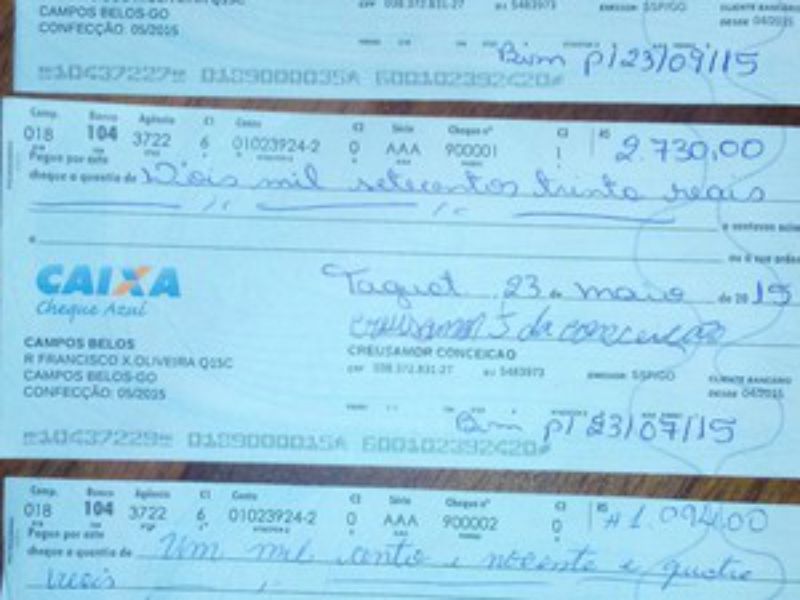 CAMPOS BELOS-GO
CONFECÇÃO: 05/2015
CPF 038.372.831-27 RU 5483973 EMISSOR: SSP/GO CLIENTE BANCÁRIO
DESDE 04/2015
Bom p/ 23/09/15
Comp. Banco Agência C1 Conta C2 Série Cheque nº C3 R$
018 104 3722 6 01023924-2 0 AAA 900001 1 2.730,00
Pague por este
cheque a quantia de Dois mil setecentos trinta reais
e centavos acima
a ou à sua ordem
CAIXA
Cheque Azul
Taguat 23 de maio de 2015
creusamor S da conceição
CAMPOS BELOS
R FRANCISCO X.OLIVEIRA Q15C
CAMPOS BELOS-GO
CONFECÇÃO: 05/2015
CREUSAMOR CONCEICAO
CPF 038.372.831-27 RU 5483973 EMISSOR: SSP/GO CLIENTE BANCÁRIO
DESDE 04/2015
Bom p/ 23/07/15
Comp. Banco Agência C1 Conta C2 Série Cheque nº C3 R$
018 104 3722 6 01023924-2 0 AAA 900002 0 #1.094,00
Pague por este
cheque a quantia de Um mil cento e novente e quatro
reais